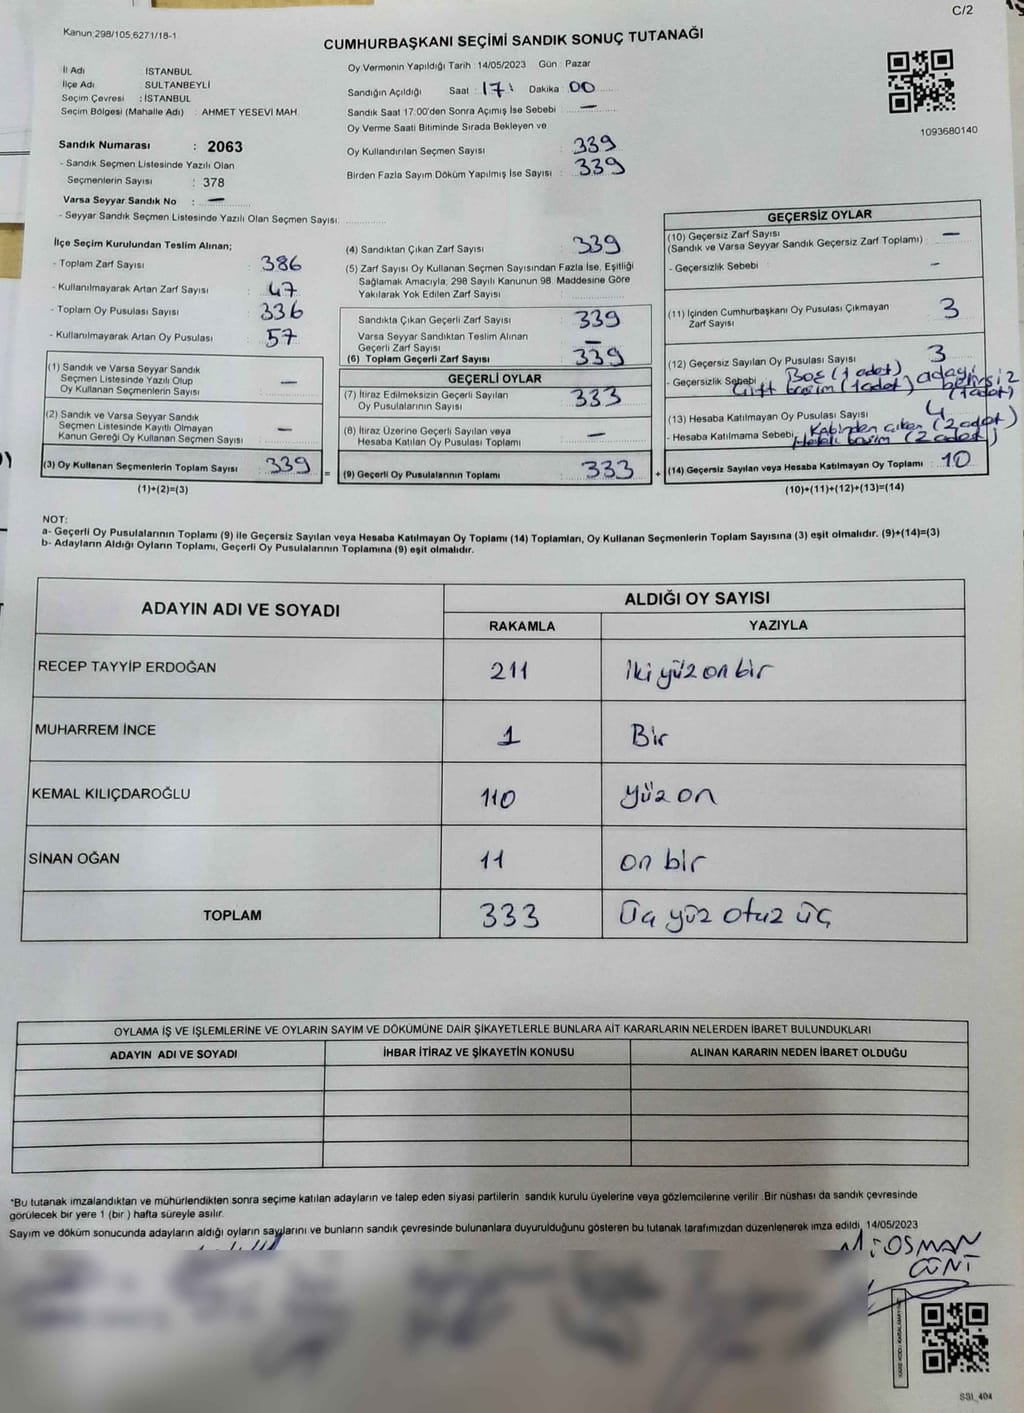 C/2
Kanun:298/105,6271/18-1
CUMHURBAŞKANI SEÇİMİ SANDIK SONUÇ TUTANAĞI
İl Adı : İSTANBUL
İlçe Adı : SULTANBEYLİ
Seçim Çevresi : İSTANBUL
Seçim Bölgesi (Mahalle Adı) : AHMET YESEVİ MAH.
Oy Vermenin Yapıldığı Tarih : 14/05/2023 Gün : Pazar
Sandığın Açıldığı Saat : 17: Dakika : 00
Sandık Saat 17:00'den Sonra Açımış İse Sebebi : —
Oy Verme Saati Bitiminde Sırada Bekleyen ve
Oy Kullandırılan Seçmen Sayısı : 339
Birden Fazla Sayım Döküm Yapılmış İse Sayısı : 339
1093680140
Sandık Numarası : 2063
- Sandık Seçmen Listesinde Yazılı Olan
Seçmenlerin Sayısı : 378
Varsa Seyyar Sandık No : —
- Seyyar Sandık Seçmen Listesinde Yazılı Olan Seçmen Sayısı:
İlçe Seçim Kurulundan Teslim Alınan;
- Toplam Zarf Sayısı : 386
- Kullanılmayarak Artan Zarf Sayısı : 47
- Toplam Oy Pusulası Sayısı : 336
- Kullanılmayarak Artan Oy Pusulası : 57
(1) Sandık ve Varsa Seyyar Sandık
Seçmen Listesinde Yazılı Olup
Oy Kullanan Seçmenlerin Sayısı : —
(2) Sandık ve Varsa Seyyar Sandık
Seçmen Listesinde Kayıtlı Olmayan
Kanun Gereği Oy Kullanan Seçmen Sayısı : —
(3) Oy Kullanan Seçmenlerin Toplam Sayısı : 339 =
(1)+(2)=(3)
(4) Sandıktan Çıkan Zarf Sayısı : 339
(5) Zarf Sayısı Oy Kullanan Seçmen Sayısından Fazla İse, Eşitliği
Sağlamak Amacıyla; 298 Sayılı Kanunun 98. Maddesine Göre
Yakılarak Yok Edilen Zarf Sayısı :
Sandıkta Çıkan Geçerli Zarf Sayısı : 339
Varsa Seyyar Sandıktan Teslim Alınan
Geçerli Zarf Sayısı : —
(6) Toplam Geçerli Zarf Sayısı : 339
GEÇERLİ OYLAR
(7) İtiraz Edilmeksizin Geçerli Sayılan
Oy Pusulalarının Sayısı : 333
(8) İtiraz Üzerine Geçerli Sayılan veya
Hesaba Katılan Oy Pusulası Toplamı : —
(9) Geçerli Oy Pusulalarının Toplamı : 333 +
GEÇERSİZ OYLAR
(10) Geçersiz Zarf Sayısı
(Sandık ve Varsa Seyyar Sandık Geçersiz Zarf Toplamı) : —
- Geçersizlik Sebebi : —
(11) İçinden Cumhurbaşkanı Oy Pusulası Çıkmayan
Zarf Sayısı : 3
(12) Geçersiz Sayılan Oy Pusulası Sayısı : 3
- Geçersizlik Sebebi: Boş (1 adet)
Çift basım (1 adet) adayı belirsiz (1 adet)
(13) Hesaba Katılmayan Oy Pusulası Sayısı : 4
- Hesaba Katılmama Sebebi: Kabinden çıkan (2 adet)
basım (2 adet)
(14) Geçersiz Sayılan veya Hesaba Katılmayan Oy Toplamı : 10
(10)+(11)+(12)+(13)=(14)
NOT:
a- Geçerli Oy Pusulalarının Toplamı (9) ile Geçersiz Sayılan veya Hesaba Katılmayan Oy Toplamı (14) Toplamları, Oy Kullanan Seçmenlerin Toplam Sayısına (3) eşit olmalıdır. (9)+(14)=(3)
b- Adayların Aldığı Oyların Toplamı, Geçerli Oy Pusulalarının Toplamına (9) eşit olmalıdır.
ADAYIN ADI VE SOYADI
ALDIĞI OY SAYISI
RAKAMLA YAZIYLA
RECEP TAYYİP ERDOĞAN 211 iki yüz on bir
MUHARREM İNCE 1 Bir
KEMAL KILIÇDAROĞLU 110 yüz on
SİNAN OĞAN 11 on bir
TOPLAM 333 Üç yüz otuz üç
OYLAMA İŞ VE İŞLEMLERİNE VE OYLARIN SAYIM VE DÖKÜMÜNE DAİR ŞİKAYETLERLE BUNLARA AİT KARARLARIN NELERDEN İBARET BULUNDUKLARI
ADAYIN ADI VE SOYADI İHBAR İTİRAZ VE ŞİKAYETİN KONUSU ALINAN KARARIN NEDEN İBARET OLDUĞU
*Bu tutanak imzalandıktan ve mühürlendikten sonra seçime katılan adayların ve talep eden siyasi partilerin sandık kurulu üyelerine veya gözlemcilerine verilir. Bir nüshası da sandık çevresinde
görülecek bir yere 1 (bir ) hafta süreyle asılır.
Sayım ve döküm sonucunda adayların aldığı oyların sayılarını ve bunların sandık çevresinde bulunanlara duyurulduğunu gösteren bu tutanak tarafımızdan düzenlenerek imza edildi. 14/05/2023
OSMAN
SSI_404